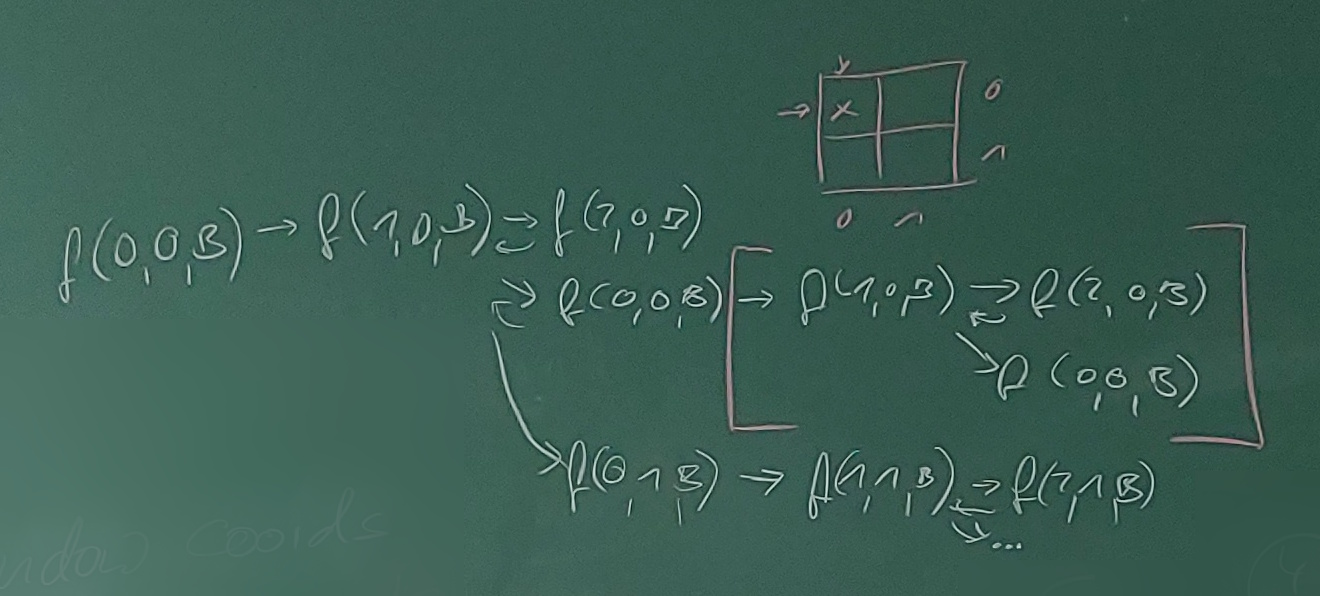 x 0
1
0 1
f(0,0,B) → f(1,0,B) ⇄ f(2,0,B)
f(0,0,B) → f(1,0,B) ⇄ f(2,0,B)
f(0,0,B)
f(0,1,B) → f(1,1,B) ⇄ f(2,1,B)
...
ndow coords